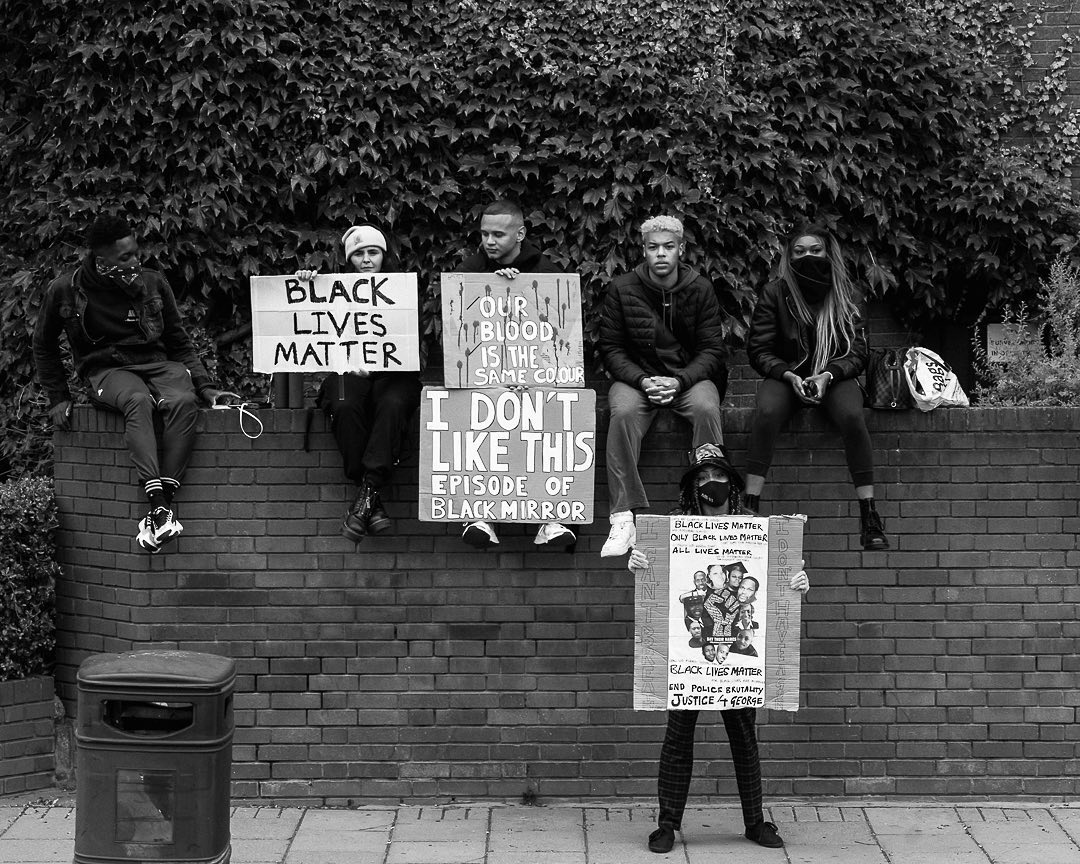 BLACK
LIVES
MATTER
OUR
BLOOD
IS THE
SAME COLOUR
I DON'T
LIKE THIS
EPISODE OF
BLACK MIRROR
BLACK LIVES MATTER
ONLY BLACK LIVES MATTER
ALL LIVES MATTER
SAY THEIR NAMES
BLACK LIVES MATTER
END POLICE BRUTALITY
JUSTICE 4 GEORGE